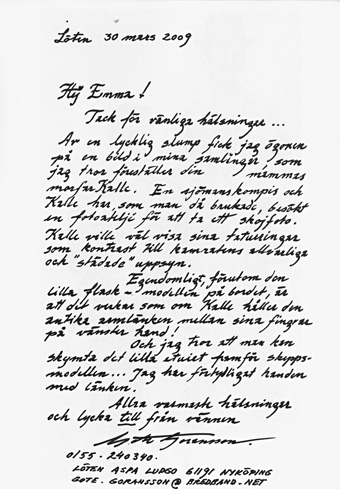 Löten 30 mars 2009
Hej Emma!
Tack för vänliga hälsningar...
Av en lycklig slump fick jag ögonen
på en bild i mina samlingar, som
jag tror föreställer din mammas
morfar Kalle. En sjömanskompis och
Kalle har, som man då brukade, besökt
en fotoateljé för att ta ett skojfoto.
Kalle ville väl visa sina tatueringar
som kontrast till kamratens allvarliga
och "städade" uppsyn.
Egendomligt, förutom den
lilla flask-modellen på bordet, är
att det verkar som om Kalle håller den
antika armlänken mellan sina fingrar
på vänster hand!
Och jag tror att man kan
skymta det lilla etuiet framför skepps-
modellen... Jag har förtydligat handen
med länken.
Allra varmaste hälsningar
och lycka till från vännen
Göransson.
0155-240340.
LÖTEN ASPA LUDGO 61191 NYKÖPING
GOTE.GORANSSON@BREDBAND.NET